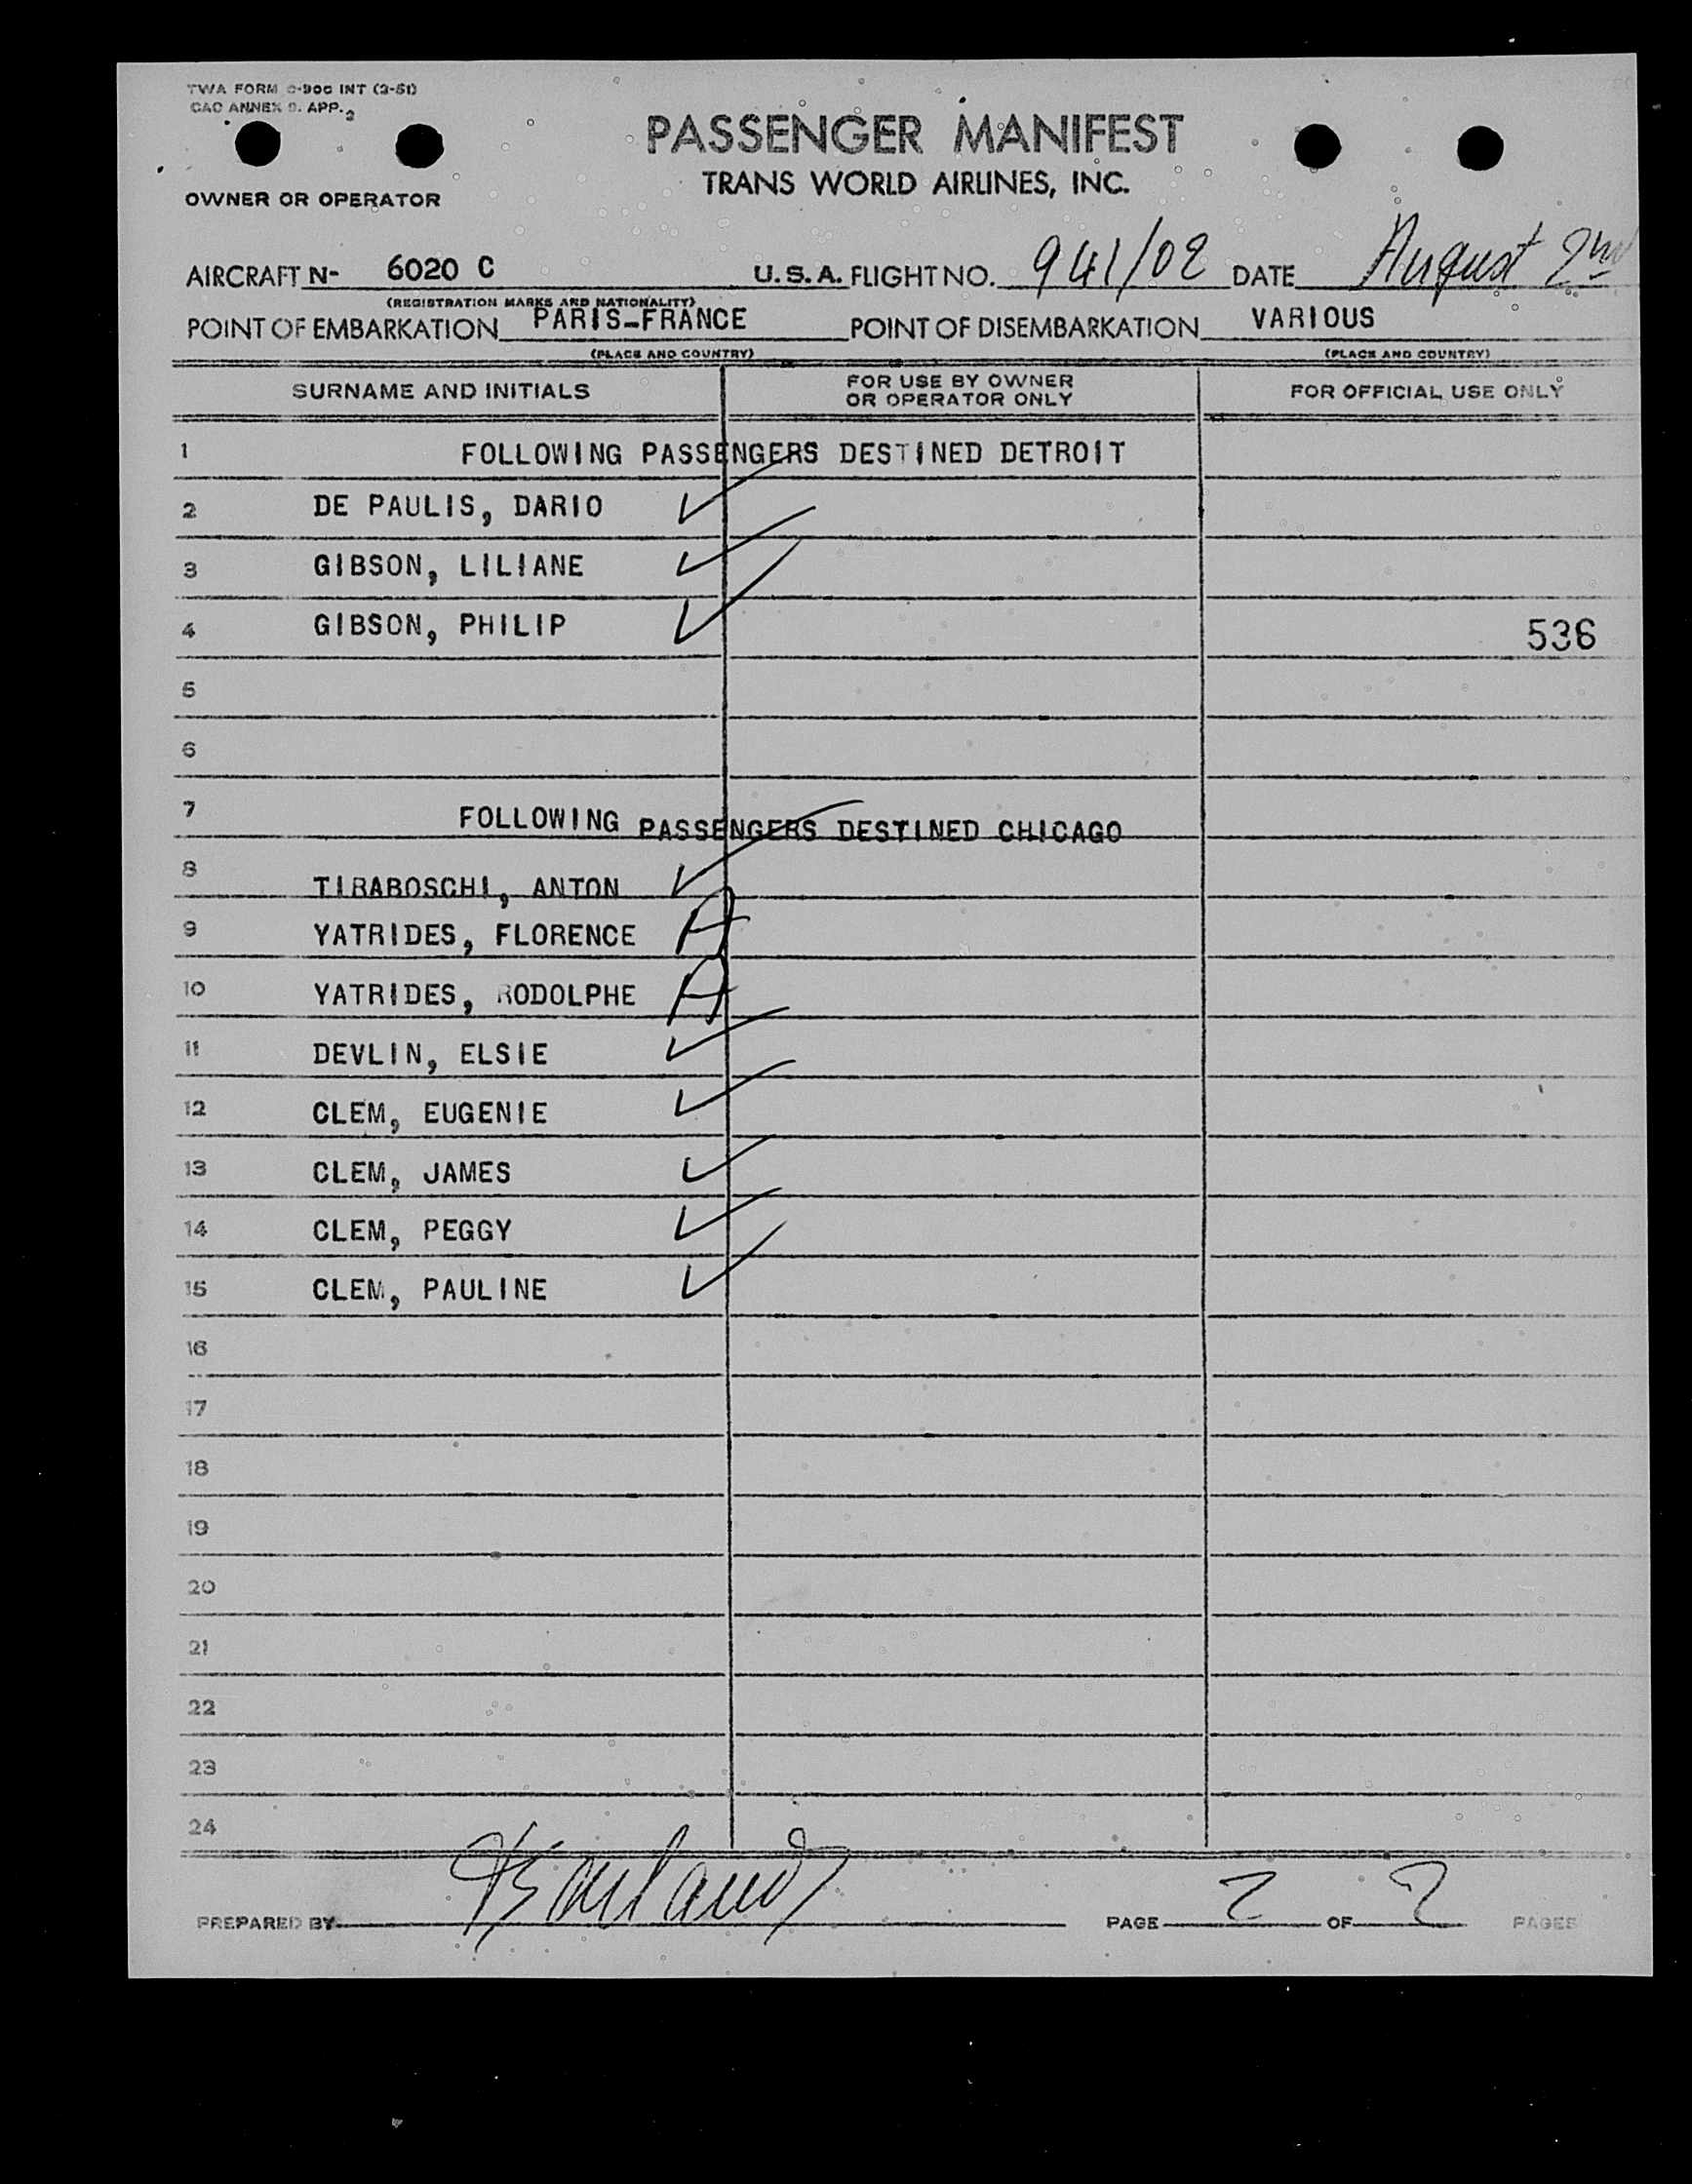 TWA FORM 0-900 INT (2-51)
CAO ANNEX 9. APP. 2
PASSENGER MANIFEST
TRANS WORLD AIRLINES, INC.
OWNER OR OPERATOR
AIRCRAFT N- 6020 C U.S.A. FLIGHT NO. 941/02 DATE August 2nd
(REGISTRATION MARKS AND NATIONALITY)
POINT OF EMBARKATION PARIS-FRANCE POINT OF DISEMBARKATION VARIOUS
(PLACE AND COUNTRY) (PLACE AND COUNTRY)
SURNAME AND INITIALS FOR USE BY OWNER OR OPERATOR ONLY FOR OFFICIAL USE ONLY
1 FOLLOWING PASSENGERS DESTINED DETROIT
2 DE PAULIS, DARIO ✓
3 GIBSON, LILIANE ✓
4 GIBSON, PHILIP ✓ 536
5
6
7 FOLLOWING PASSENGERS DESTINED CHICAGO
8 TIRABOSCHI, ANTON ✓
9 YATRIDES, FLORENCE A
10 YATRIDES, RODOLPHE A
11 DEVLIN, ELSIE ✓
12 CLEM, EUGENIE ✓
13 CLEM, JAMES ✓
14 CLEM, PEGGY ✓
15 CLEM, PAULINE ✓
16
17
18
19
20
21
22
23
24
PREPARED BY PAGE 2 OF 2 PAGES